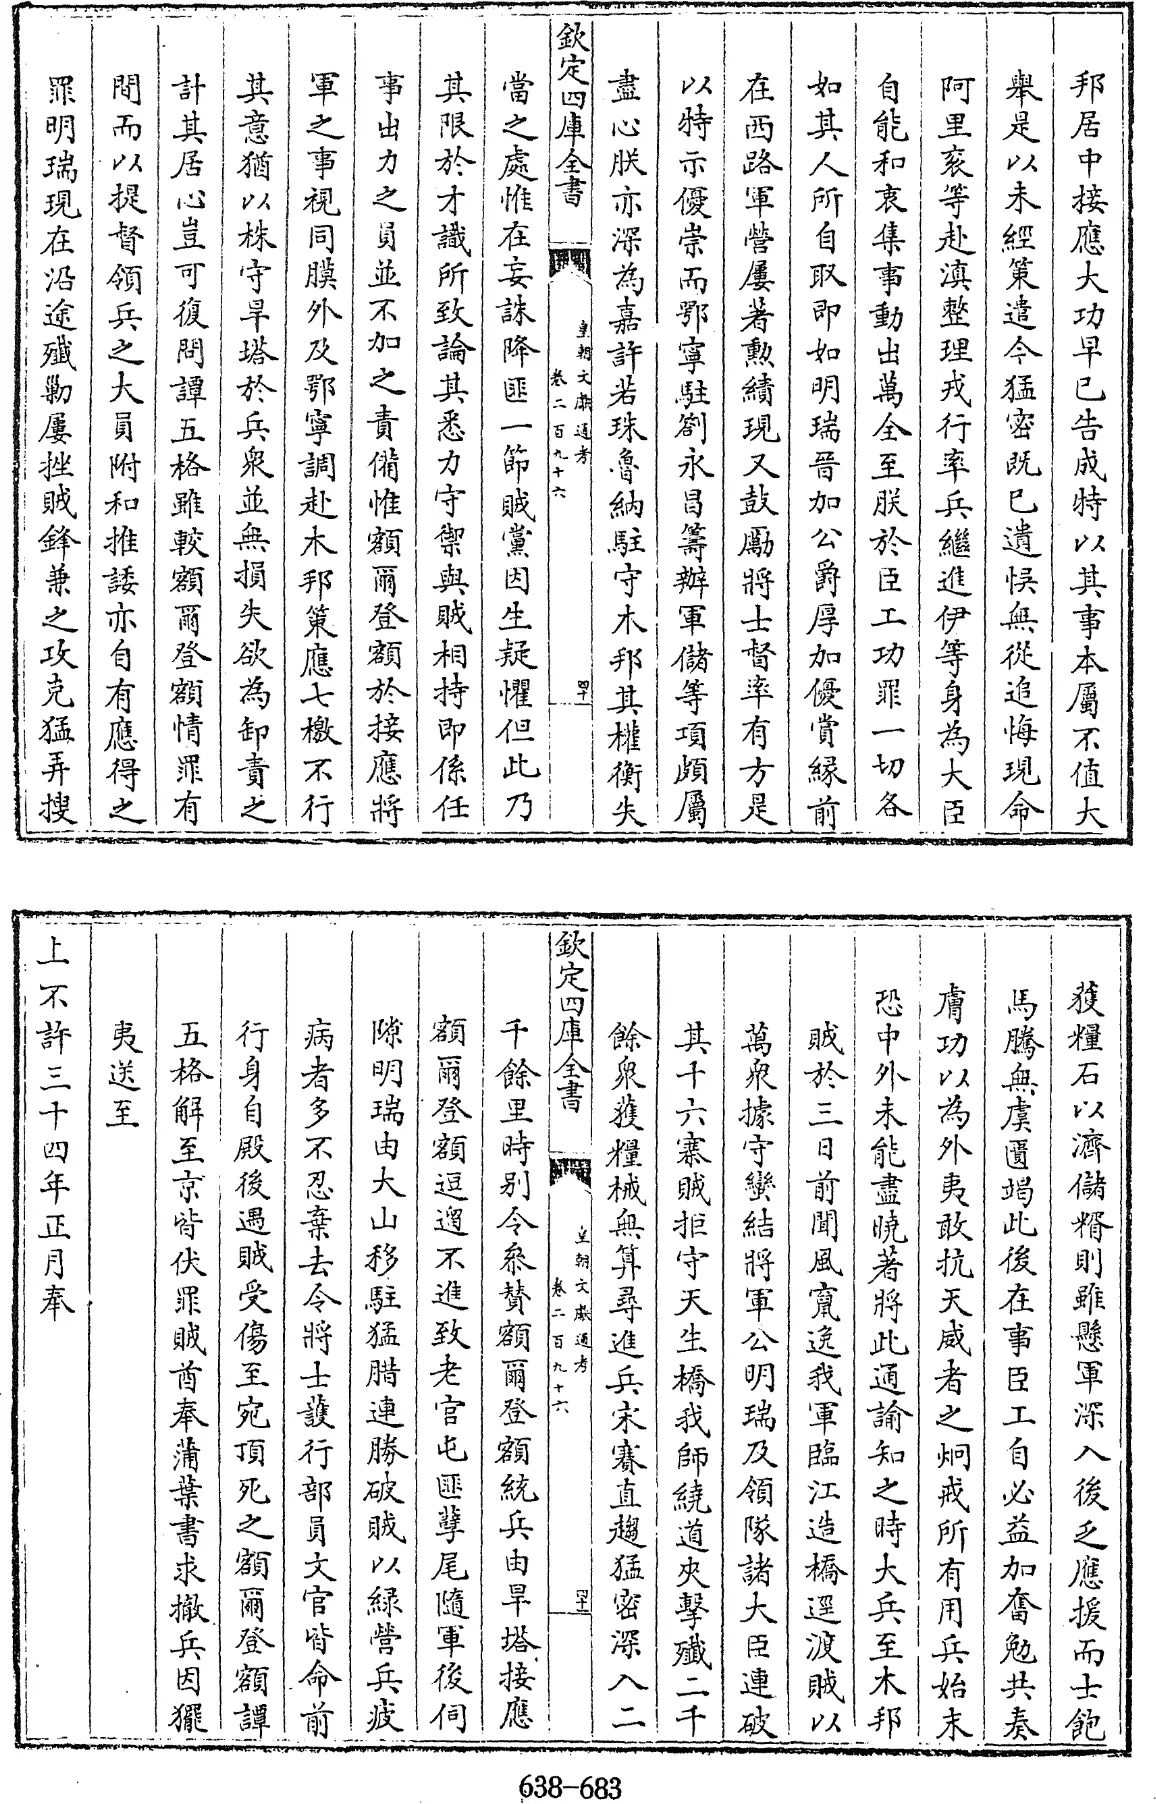 邦居中接應大功早已告成特以其事本屬不值大
舉是以未經策遣今猛密既已遺悞無從追悔現命
阿里衮等赴滇整理戎行率兵繼進伊等身為大臣
自能和衷集事動出萬全至朕於臣工功罪一切各
如其人所自取即如明瑞晉加公爵厚加優賞縁前
在西路軍營屢著勲績現又鼓勵將士督率有方是
以特示優崇而鄂寧駐劄永昌籌辦軍儲等項頗屬
盡心朕亦深為嘉許若珠魯納駐守木邦其權衡失
欽定四庫全書
皇朝文獻通考
卷二百九十六
四十一
當之處惟在妄誅降匪一節賊黨因生疑懼但此乃
其限於才識所致論其悉力守禦與賊相持即係任
事出力之員並不加之責備惟額爾登額於接應將
軍之事視同膜外及鄂寧調赴木邦策應七檄不行
其意猶以株守旱塔於兵衆並無損失欲為卸責之
計其居心豈可復問譚五格雖較額爾登額情罪有
間而以提督領兵之大員附和推諉亦自有應得之
罪明瑞現在沿途殲勦屢挫賊鋒兼之攻克猛弄搜
獲糧石以濟儲糈則雖懸軍深入後乏應援而士飽
馬騰無虞匱竭此後在事臣工自必益加奮勉共奏
膚功以為外夷敢抗天威者之炯戒所有用兵始末
恐中外未能盡曉著將此通諭知之時大兵至木邦
賊於三日前聞風竄逸我軍臨江造橋逕渡賊以
萬衆據守蠻結將軍公明瑞及領隊諸大臣連破
其十六寨賊拒守天生橋我師繞道夾擊殲二千
餘衆獲糧械無算尋進兵宋賽直趨猛密深入二
欽定四庫全書
皇朝文獻通考
卷二百九十六
四十二
千餘里時别令叅贊額爾登額統兵由旱塔接應
額爾登額逗遛不進致老官屯匪孽尾隨軍後伺
隙明瑞由大山移駐猛腊連勝破賊以緑營兵疲
病者多不忍棄去令將士護行部員文官皆命前
行身自殿後遇賊受傷至宛頂死之額爾登額譚
五格解至京皆伏罪賊酋奉蒲葉書求撤兵因玀
夷送至
上不許三十四年正月奉
638-683